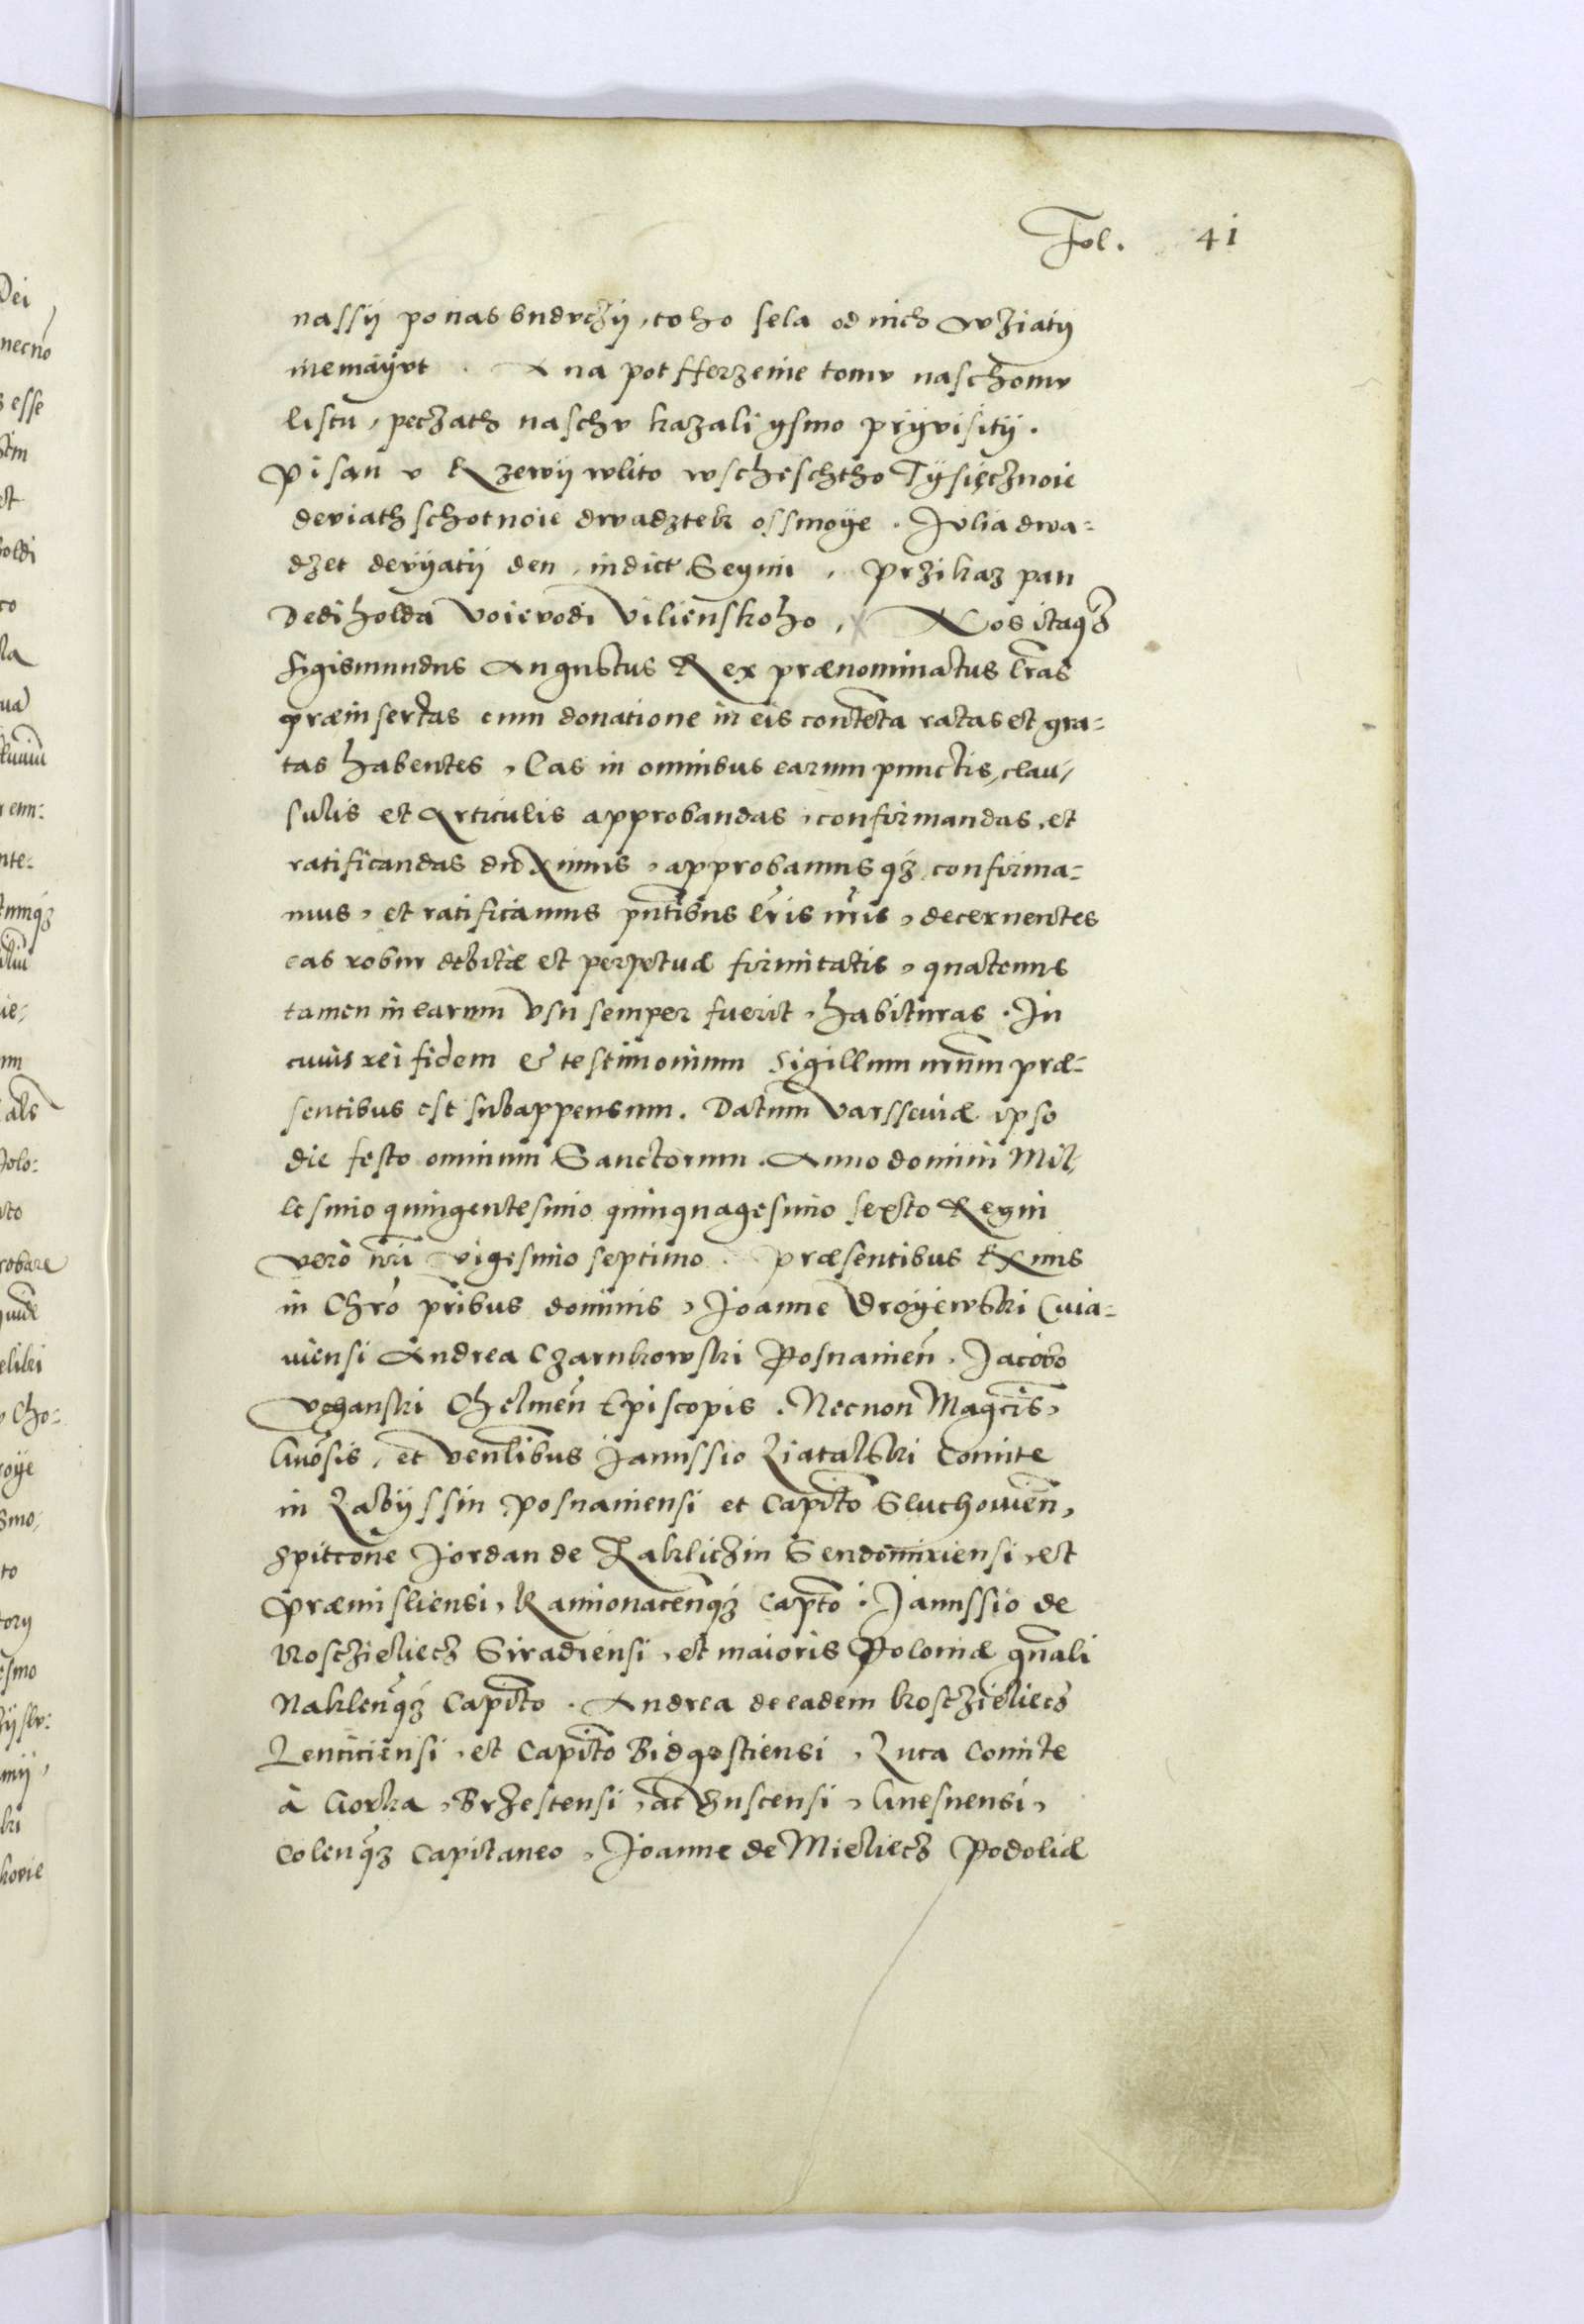 Fol. 41
nassÿ ponas budvczÿ, toho sela od nich wziatÿ
niemaÿvt. A na potfferzenie tomv naschomv
listu, peczath naschv kazali ysmo prÿvisitÿ.
Pisan v Kzewÿ wlito wscheschtho Tÿsięcznoie
deviathschotnoie dwadztek ossmoÿe. Jvlia dwa=
dzet devÿatÿ den, indict Seymi, Przikaz pan
Dediholda Voievodi Vilienskoho, Nos itaqz
Sigismundus Augustus Rex prænominatus l̃ras
præinsertas cum donatione in eis contẽta ratas et gra=
tas habentes, Eas in omnibus earum punctis, clau,
sulis et Articulis approbandas, confirmandas, et
ratificandas duximus, approbamusqz, confirma=
mus, et ratificamus pñtibus l̃ris nr̃is, decernentes
eas robur debitæ et perpetuæ firmitatis, quatenus
tamen in earum vsu semper fuerit, habituras. In
cuius rei fidem & testimonium Sigillum nr̃um præ=
sentibus est subappensum. Datum Varsseuiæ ipso
die festo omnium Sanctorum. Anno domini Mil,
lesimo quingentesimo quinquagesimo sexto Regni
vero nr̃i vigesimo septimo. Præsentibus Rx̃mis
in Chr̃o pr̃ibus dominis, Joanne Droÿewski Cuia=
uiensi Andrea Czarnkowski Posnanien̄. Jacobo
Vchanski Chelmen̄ Episcopis. Necnon Magcis̃,
Gñosis, et Venl̃ibus Janussio Latalski Comite
in Labÿssin Posnaniensi et Capit̃o Sluchouien̄,
Spitcone Jordan de Zakliczin Sendomiriensi, et
Præmisliensi, Kamionacen̄qz Capt̃o. Janussio de
Koszczieliecz Siradiensi, et maioris Poloniæ gñali
Naklen̄qz Capit̃o. Andrea de eadem Koszczieliecz
Lenciciensi, et Capit̃o Bidgostiensi, Luca Comite
à Gorka, Brzestensi, ac Buscensi, Gnesnensi,
Colen̄qz Capitaneo, Joanne de Mieliecz Podoliæ